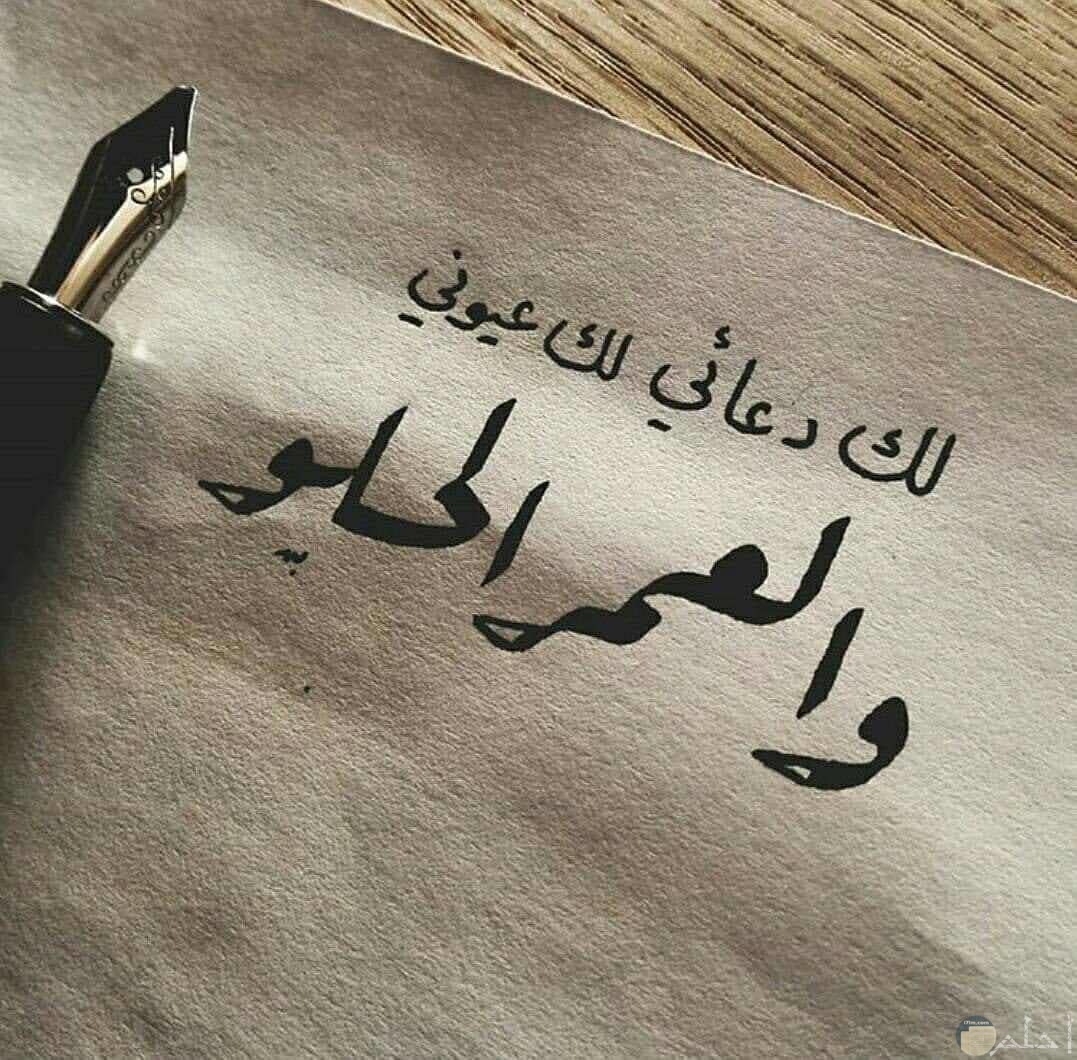 لك دعائي لك عيوني
والعمر الحلو
احلم